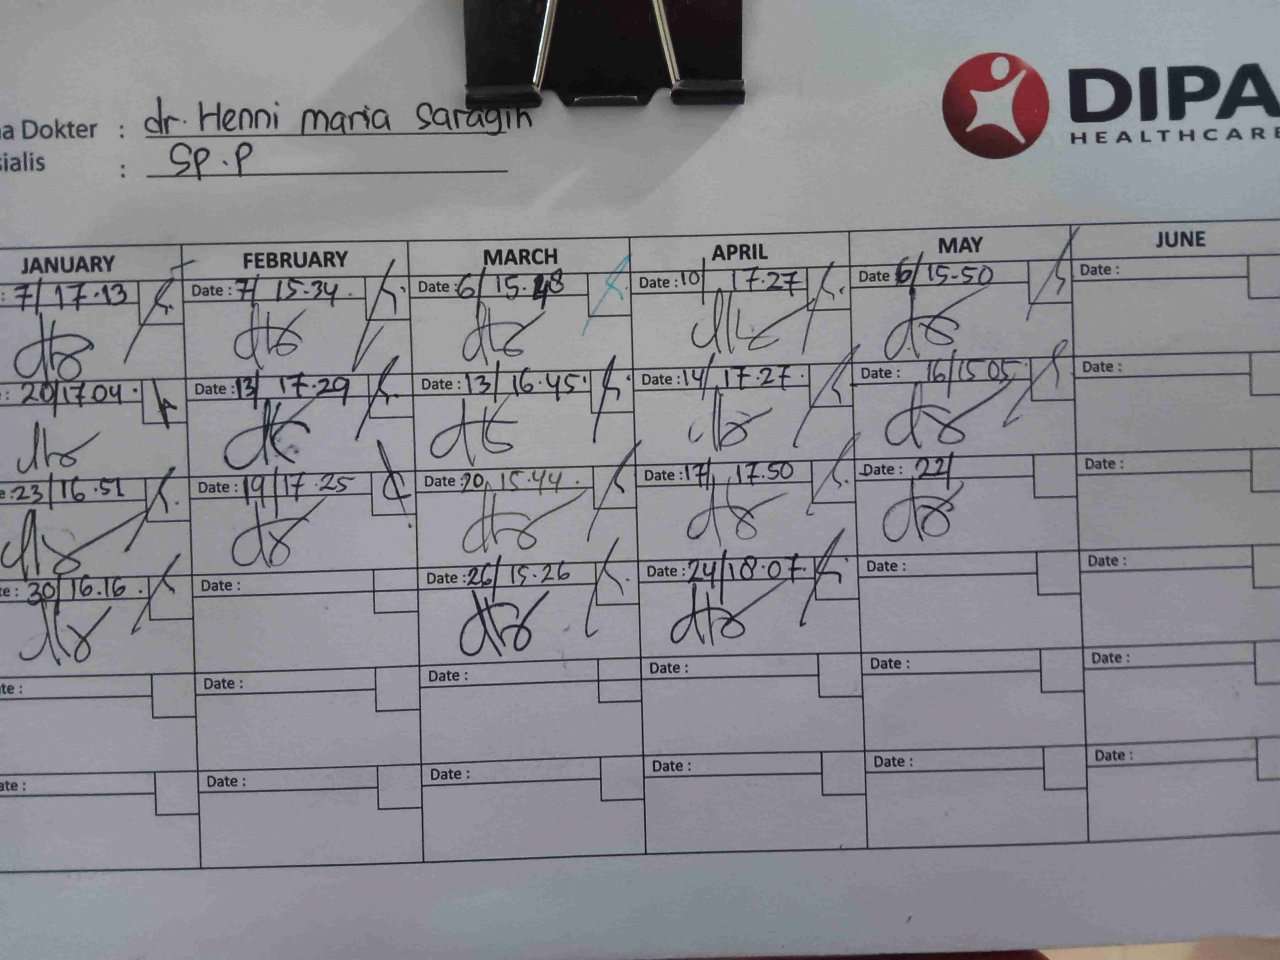 DIPA
HEALTHCARE
a Dokter : dr. Henni maria Saragih
ialis : SP.P
JANUARY FEBRUARY MARCH APRIL MAY JUNE
: 7/ 17.13 Date : 7/ 15.34 Date : 6/ 15. Date : 10/ 17.27 Date : 6/15.50 Date :
: 20/17.04 Date : 13/ 17.29 Date : 13/ 16.45 Date : 14/ 17.27 Date : 16/15 05 Date :
e : 23/16.51 Date : 19/17.25 Date : 20/ 15.44 Date : 17/ 17.50 Date : 22/ Date :
te : 30/16.16 Date : Date : 26/ 15.26 Date : 24/18.07 Date : Date :
te : Date : Date : Date : Date : Date :
ate : Date : Date : Date : Date : Date :